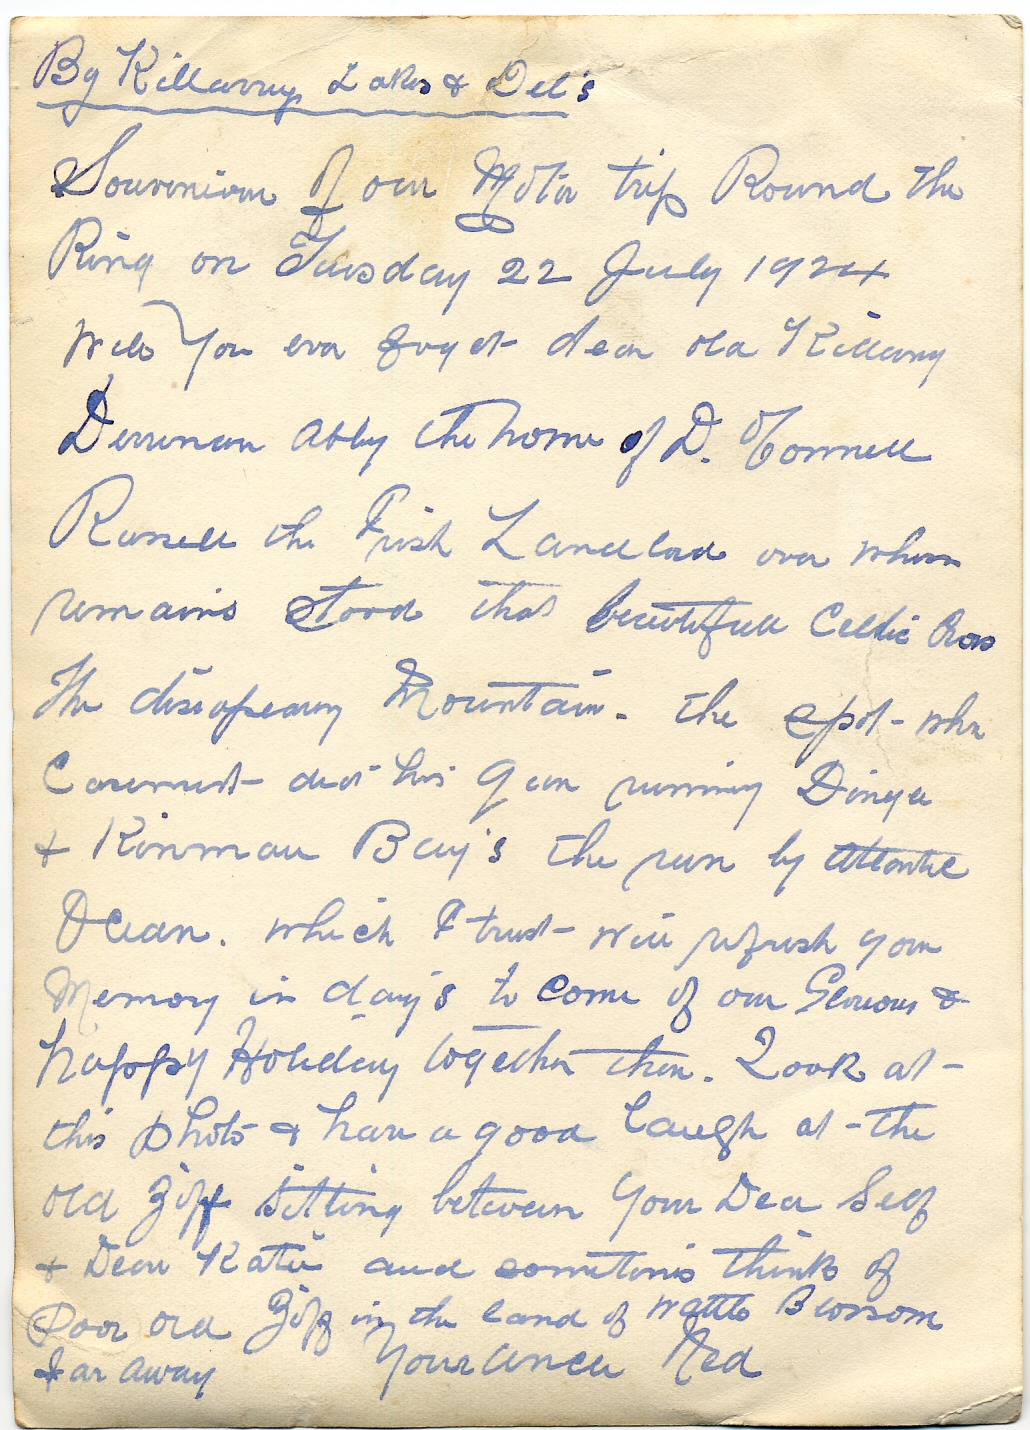 By Killarney Lakes & Dell's
Souvenior of our Motor trip Round the
Ring on Tuesday 22 July 1924
Will You ever forget dear old Killarny
Derrenan Abby the home of D. O'Connell
Russell the Irish Landlord over whos
remains stood that beautifull Celtic Cross
The disapearing Mountain. the spot whr
Casement did his gun running Dingle
& Kinmare Bay's the run by Atlantic
Ocean. which I trust will refresh your
Memory in day's to come of our Glorious &
happy Holiday together then. Look at
this photo & have a good laugh at the
old Ziff sitting between Your Dear Self
& Dear Katie and sometimes think of
Poor old Ziff in the land of Wattle Blossom
far away Your Uncle Ned